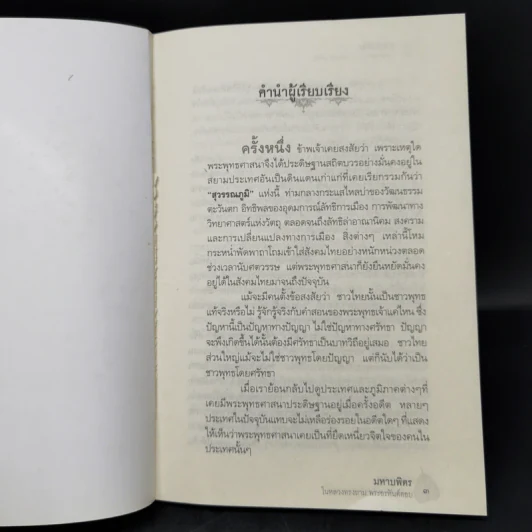 คำนำผู้เรียบเรียง
ครั้งหนึ่ง ข้าพเจ้าเคยสงสัยว่า เพราะเหตุใด
พระพุทธศาสนาจึงได้ประดิษฐานสถิตบวรอย่างมั่นคงอยู่ใน
สยามประเทศอันเป็นดินแดนเก่าแก่ที่เคยเรียกรวมกันว่า
"สุวรรณภูมิ" แห่งนี้ ท่ามกลางกระแสไหลบ่าของวัฒนธรรม
ตะวันตก อิทธิพลของอุดมการณ์ลัทธิการเมือง การพัฒนาทาง
วิทยาศาสตร์แห่งวัตถุ ตลอดจนถึงลัทธิล่าอาณานิคม สงคราม
และการเปลี่ยนแปลงทางการเมือง สิ่งต่างๆ เหล่านี้โหม
กระหน่ำพัดพาถาโถมเข้าใส่สังคมไทยอย่างหนักหน่วงตลอด
ช่วงเวลานับศตวรรษ แต่พระพุทธศาสนาก็ยังยืนหยัดมั่นคง
อยู่ได้ในสังคมไทยมาจนถึงปัจจุบัน
แม้จะมีคนตั้งข้อสงสัยว่า ชาวไทยนั้นเป็นชาวพุทธ
แท้จริงหรือไม่ รู้จักรู้จริงกับคำสอนของพระพุทธเจ้าแค่ไหน ซึ่ง
ปัญหานี้เป็นปัญหาทางปัญญา ไม่ใช่ปัญหาทางศรัทธา ปัญญา
จะพึงเกิดขึ้นได้นั้นต้องมีศรัทธาเป็นบาทวิถีอยู่เสมอ ชาวไทย
ส่วนใหญ่แม้จะไม่ใช่ชาวพุทธโดยปัญญา แต่ก็นับได้ว่าเป็น
ชาวพุทธโดยศรัทธา
เมื่อเราย้อนกลับไปดูประเทศและภูมิภาคต่างๆที่
เคยมีพระพุทธศาสนาประดิษฐานอยู่เมื่อครั้งอดีต หลายๆ
ประเทศในปัจจุบันแทบจะไม่เหลือร่องรอยในอดีตใดๆ ที่แสดง
ให้เห็นว่าพระพุทธศาสนาเคยเป็นที่ยึดเหนี่ยวจิตใจของคนใน
ประเทศนั้นๆ
มหาบพิตร
ในหลวงทรงถาม พระอรหันต์ตอบ
๓